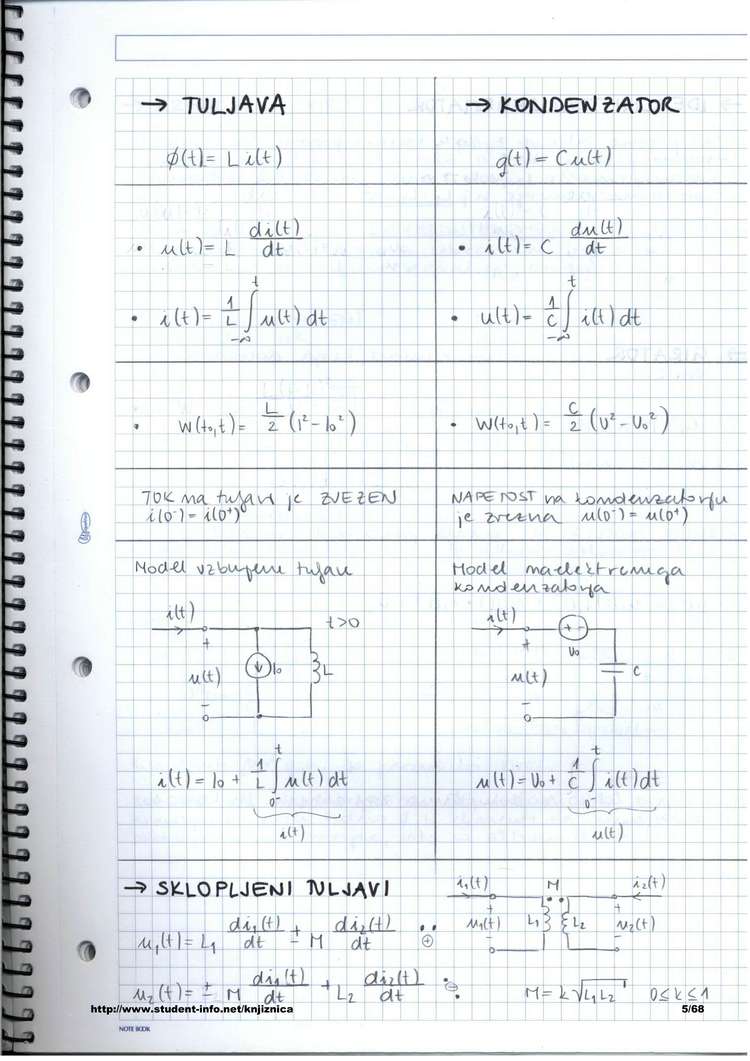 → TULJAVA
ϕ(t) = L i(t)
• u(t) = L di(t)/dt
• i(t) = 1/L ∫_{-∞}^{t} u(t) dt
• W(t₀,t) = L/2 (I² - I₀²)
TOK na tuljavi je ZVEZEN
i(0⁻) = i(0⁺)
Model vzbujene tuljave
i(t)
t>0
+
u(t)
I₀
L
-
i(t) = I₀ + 1/L ∫_{0⁻}^{t} u(t) dt
i(t)
→ KONDENZATOR
q(t) = C u(t)
• i(t) = C du(t)/dt
• u(t) = 1/C ∫_{-∞}^{t} i(t) dt
• W(t₀,t) = C/2 (U² - U₀²)
NAPETOST na kondenzatorju
je zvezna u(0⁻) = u(0⁺)
Model naelektrenega
kondenzatorja
i(t)
+ -
U₀
+
u(t)
C
-
u(t) = U₀ + 1/C ∫_{0⁻}^{t} i(t) dt
u(t)
→ SKLOPLJENI TULJAVI
u₁(t) = L₁ di₁(t)/dt ± M di₂(t)/dt •• ⊕
u₂(t) = ± M di₁(t)/dt + L₂ di₂(t)/dt ⊖
i₁(t) M i₂(t)
+ +
u₁(t) L₁ L₂ u₂(t)
- -
M = k √(L₁L₂) 0 ≤ k ≤ 1
http://www.student-info.net/knjiznica 5/68
NOTE BOOK